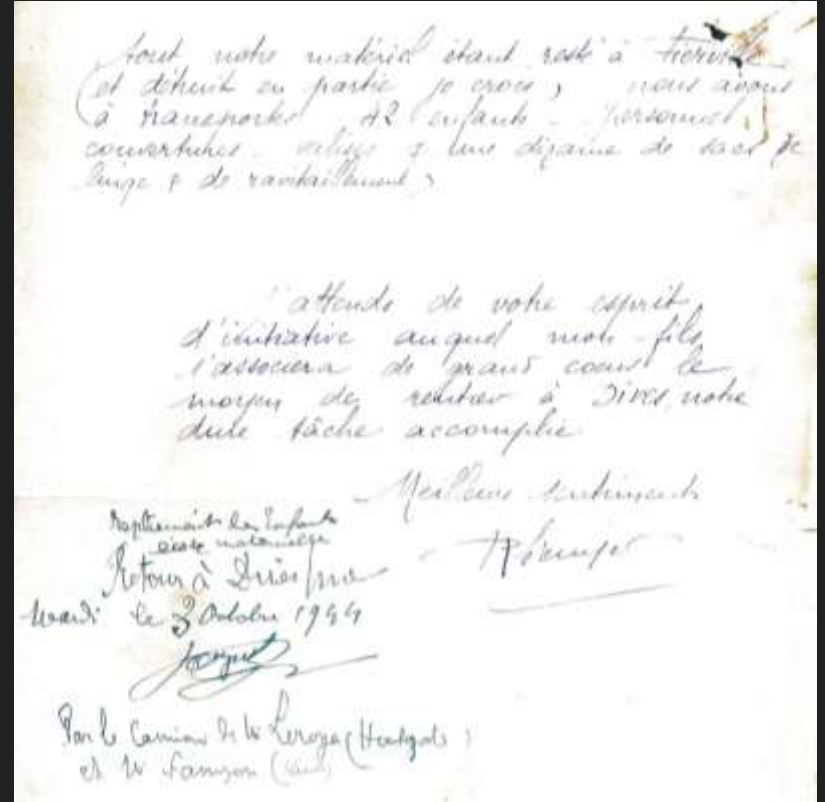 tout notre matériel étant resté à Fierville
(et détruit en partie je crois, nous avons
à transporter 42 enfants - personnel,
couvertures valises & une dizaine de sacs de
linge & de ravitaillement)
J'attends de votre esprit
d'initiative auquel mon fils
s'associera de grand coeur le
moyen de rentrer à Dives, notre
dure tâche accomplie
Meilleurs sentiments
les Enfants
école maternelle
Retour à Dives
Mardi le 3 Octobre 1944
Par le Camion de Mr Leroyer (
et Mr Samson (